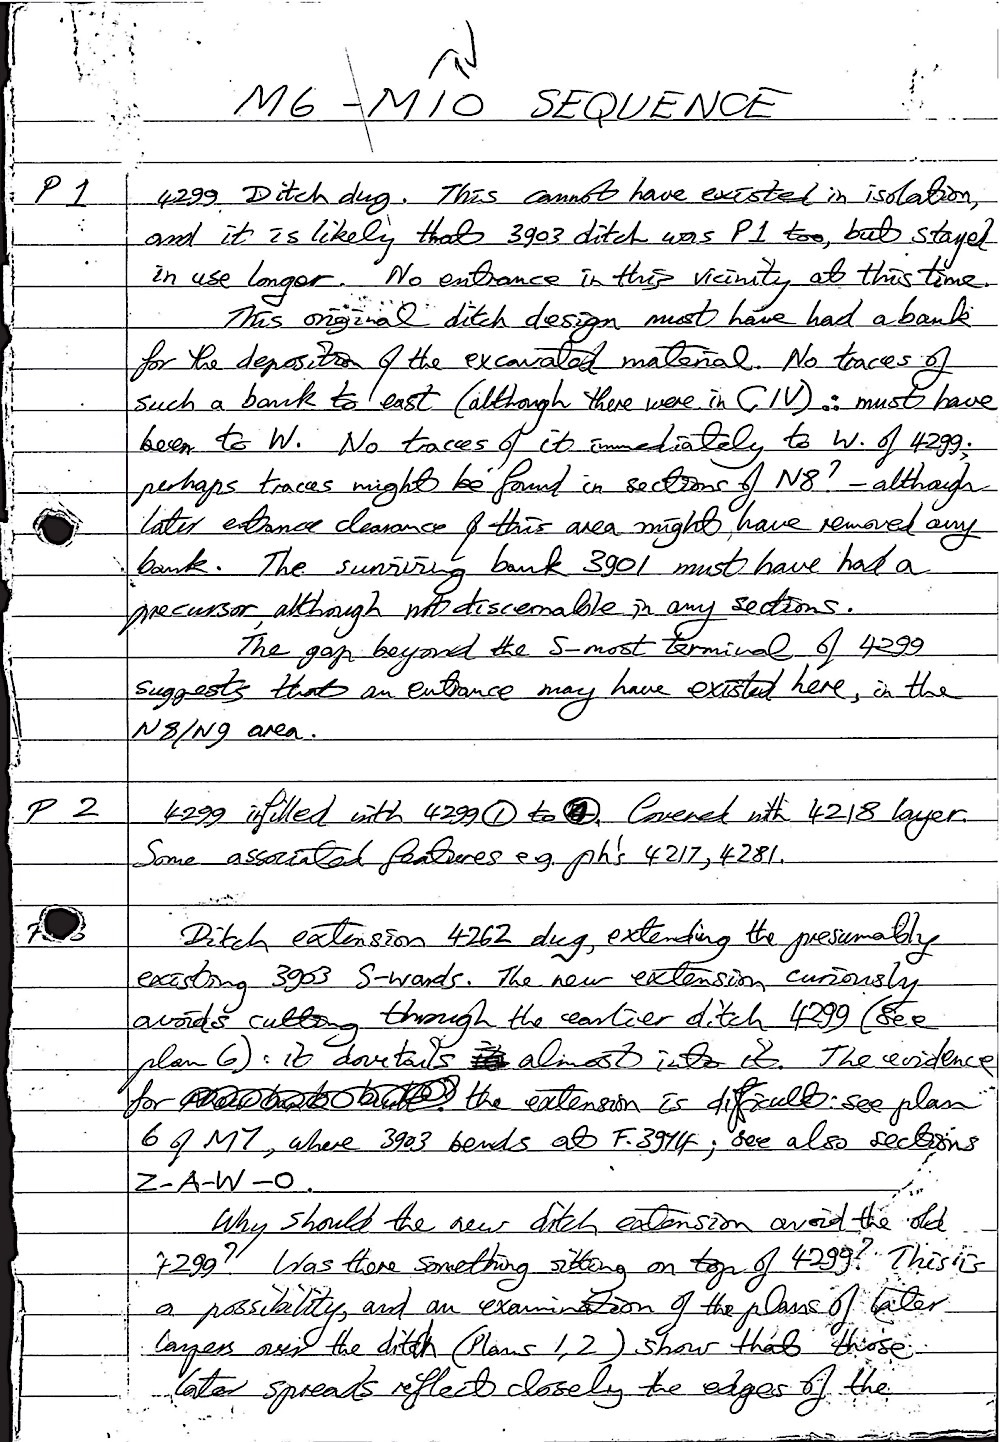 M6 - M10 SEQUENCE
P1 4299 Ditch dug. This cannot have existed in isolation,
and it is likely that 3903 ditch was P1 too, but stayed
in use longer. No entrance in this vicinity at this time.
This original ditch design must have had a bank
for the deposition of the excavated material. No traces of
such a bank to east (although there were in CIV) ∴ must have
been to W. No traces of it immediately to W. of 4299;
perhaps traces might be found in sections of N8? - although
later entrance clearance of this area might have removed any
bank. The surviving bank 3901 must have had a
precursor, although not discernable in any sections.
The gap beyond the S-most terminal of 4299
suggests that an entrance may have existed here, in the
N8/N9 area.
P 2 4299 infilled with 4299 ① to ④. Covered with 4218 layer.
Some associated features e.g. ph's 4217, 4281.
3 Ditch extension 4262 dug, extending the presumably
existing 3903 S-wards. The new extension curiously
avoids cutting through the earlier ditch 4299 (see
plan 6): it dovetails almost into it. The evidence
for the extension is difficult: see plan
6 of M7, where 3903 bends at F.3974; see also sections
Z-A-W-O.
Why should the new ditch extension avoid the old
4299? Was there something sitting on top of 4299? This is
a possibility, and an examination of the plans of later
layers over the ditch (Plans 1, 2) show that those
later spreads reflect closely the edges of the